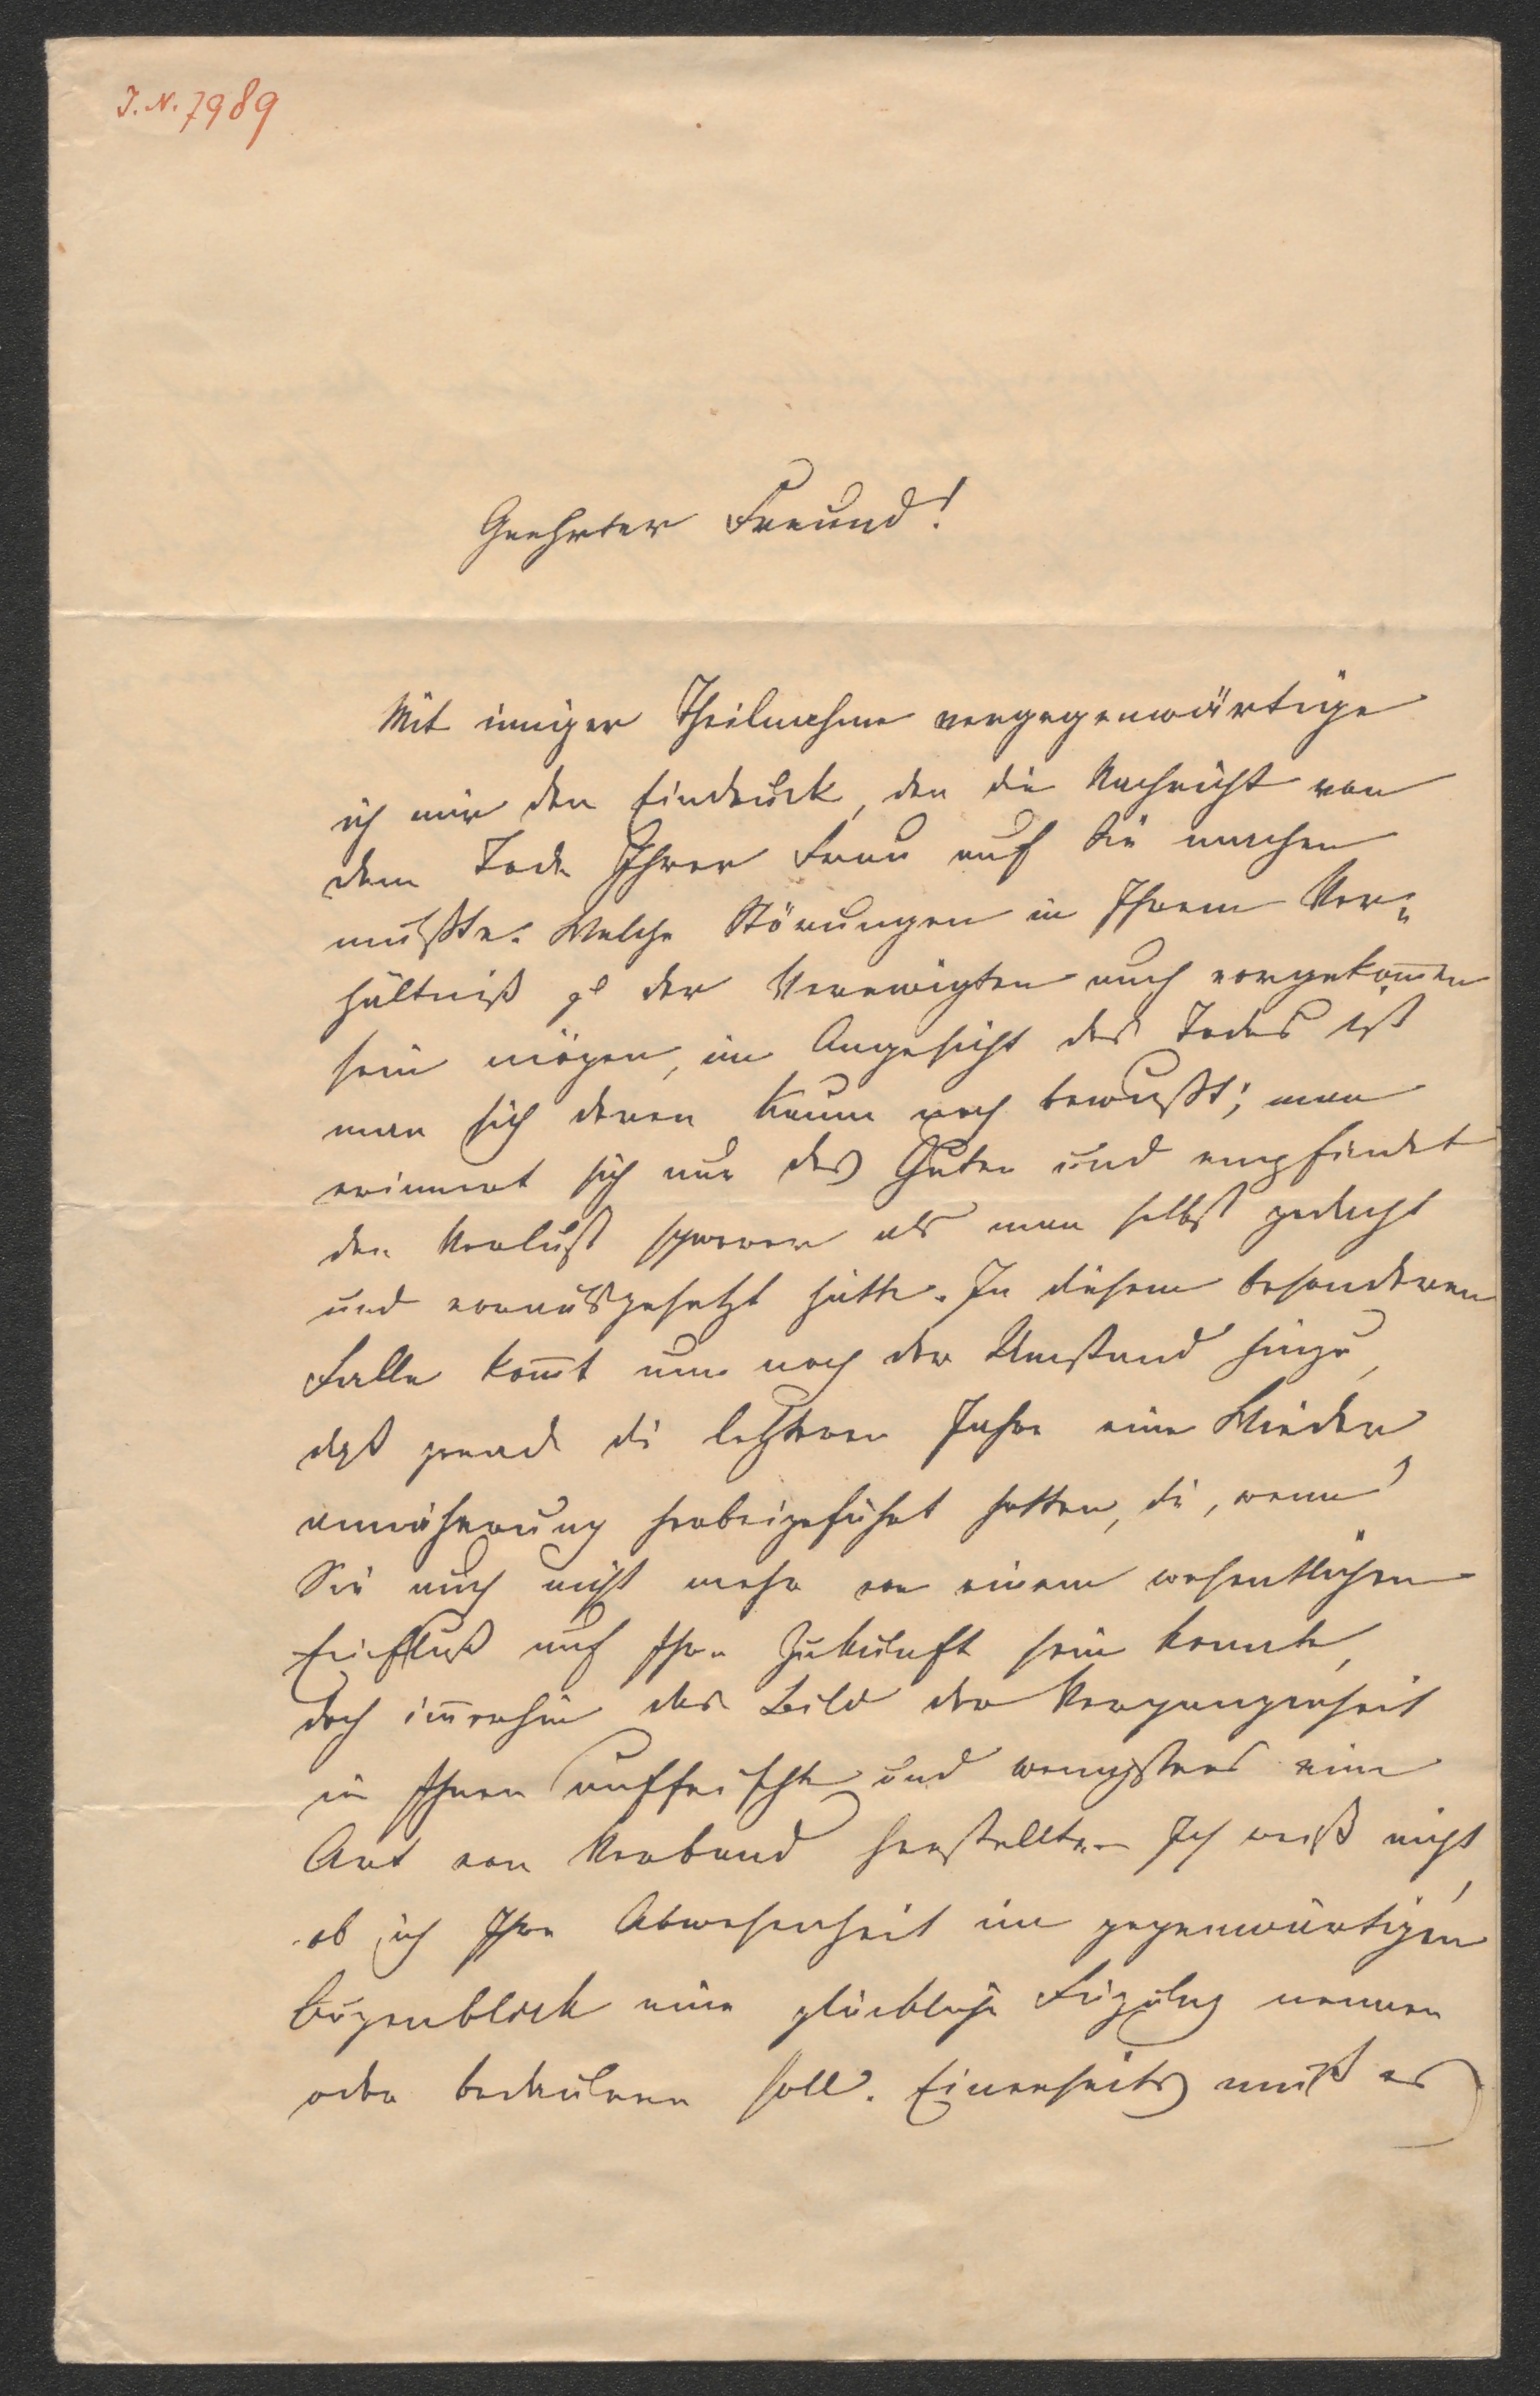 J.N. 7989
Geehrter Freund!
Mit inniger Theilnahme vergegenwärtige
ich mir den Eindruck, den die Nachricht von
dem Tode Ihrer Frau auf Sie machen
mußte. Welche Störungen in Ihrem Ver-
hältniß zu der Verewigten auch vorgekom̅en
sein mögen, im Angesicht des Todes ist
man sich deren kaum noch bewußt; man
erinnert sich nur des Guten und empfindet
den Verlust schwerer als man selbst gedacht
und vorausgesetzt hätte. In diesem besonderen
Falle kom̅t nun noch der Umstand hinzu,
daß gerade die letzteren Jahre eine Wieder
annäherung herbeigeführt hatten, die, wenn
Sie auch nicht mehr von einem wesentlichen
Einfluß auf Ihre Zukunft sein konnte,
doch im̅erhin das Bild der Vergangenheit
in Ihnen auffrischte und wenigstens eine
Art von Verband herstellte. Ich weiß nicht,
ob ich Ihre Abwesenheit im gegenwärtigen
Augenblick eine glückliche Fügung nennen
oder bedauern soll. Einerseits muß es